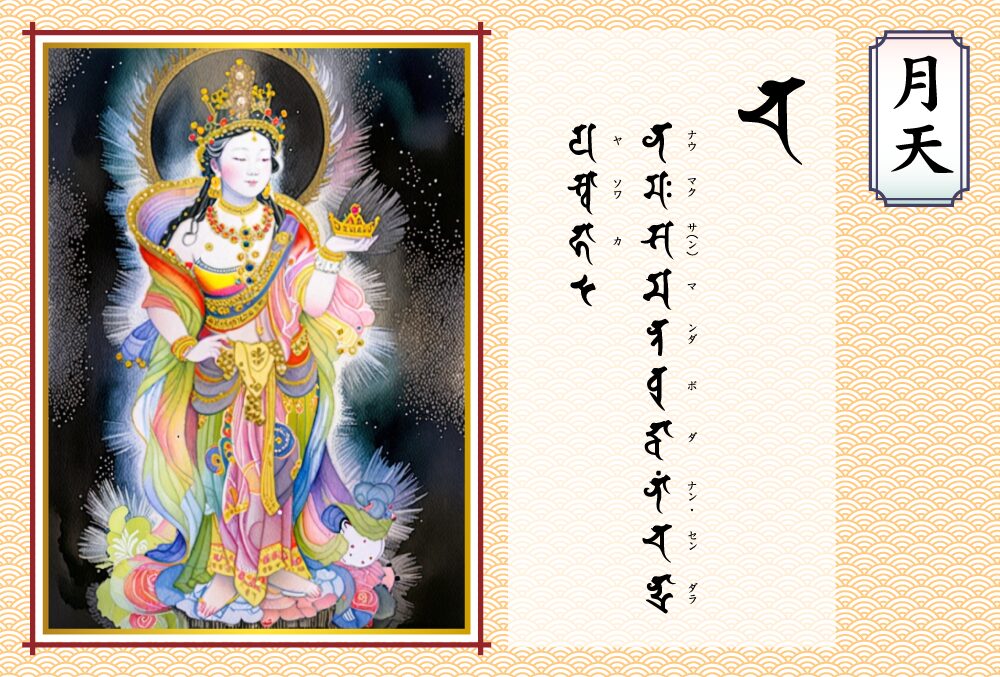 月天
𑖓
ナウ マク サ(ン) マ ンダ ボ ダ ナン・ セン ダラ
𑖡𑖦𑖾𑖭𑖦𑖡𑖿𑖝𑖤𑖲𑖟𑖿𑖠𑖯𑖡𑖯𑖽𑖓𑖡𑖿𑖟𑖿𑖨𑖯
ヤ ソワ カ
𑖧𑖭𑖿𑖪𑖯𑖮𑖯